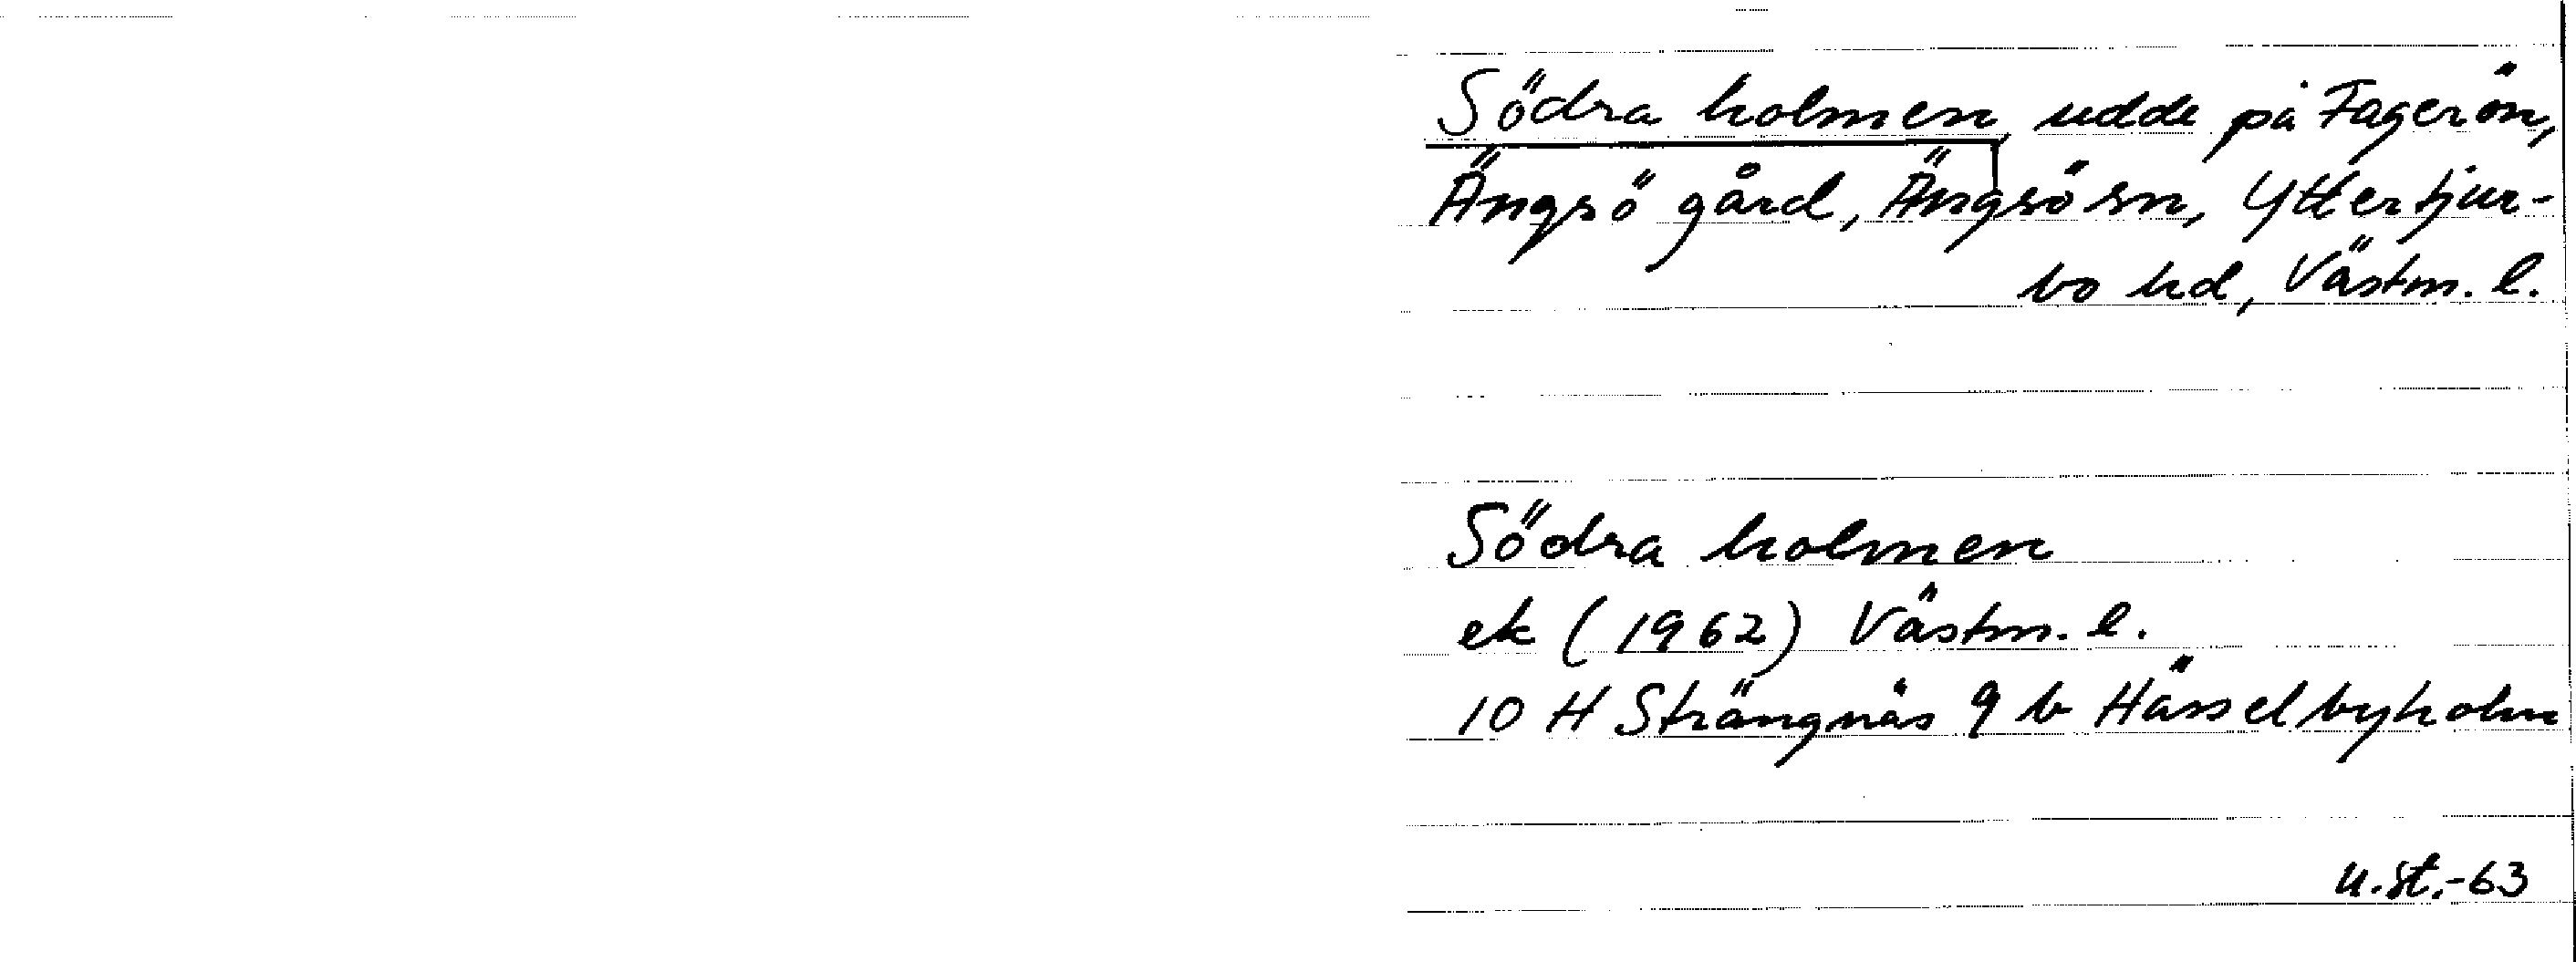 Södra holmen, udde på Fagerön,
Ängsö gård, Ängsö sn, Yttertjur-
bo hd, Västm. l.
Södra holmen
ek (1962) Västm. l.
10 H Strängnäs 9 b Hässelbyholm
u.st.-63